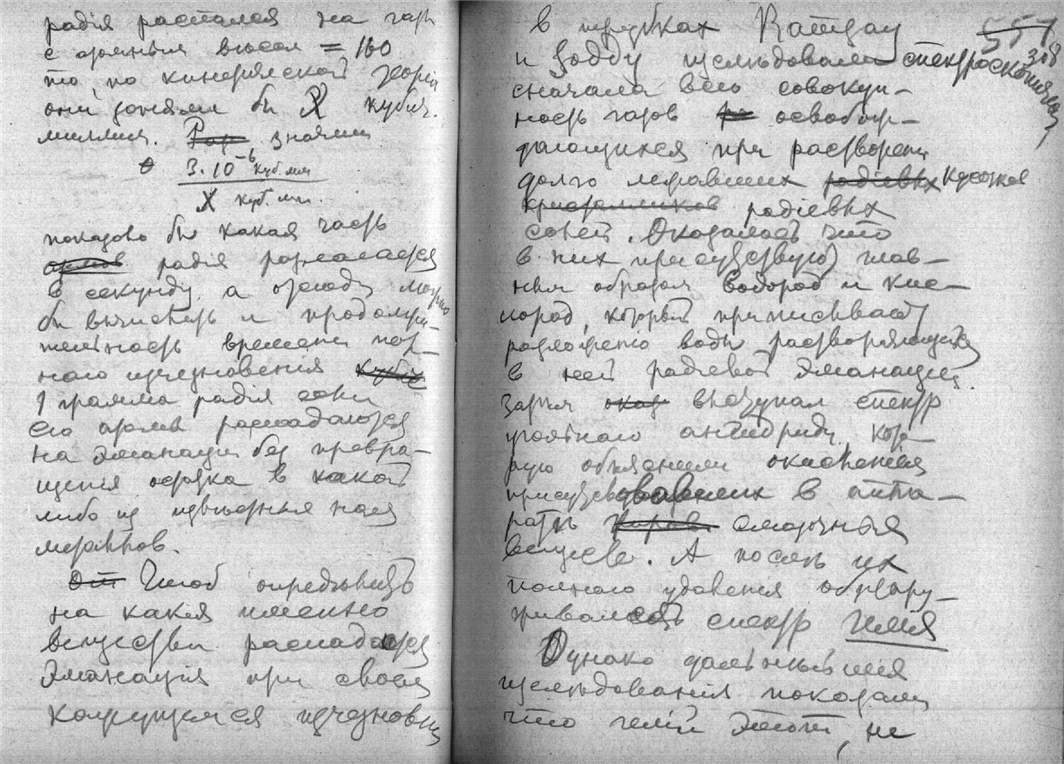 радія распался на газъ
с атомным весом = 160
то, по кинетической теоріи
они заняли бы X кубич.
миллим. значит
3·10⁻⁶ куб. мм
X куб. мм.
показало бы какая часть
радія разлагается
в секунду, а отсюда можно
бы вычислить и продолжи-
тельность времени пол-
наго изчезновения
1 грамма радія если
его атомы распадаются
на эманацию без превра-
щения остатка в какой
либо из известных нам
металлов.
Чтоб определить
на какія именно
вещества распадается
эманація при своем
кажущемся изчезновении
557
308
в трубках Рамзау
и Содди изследовали спектроскопически
сначала всю совокуп-
ность газов освобож-
дающихся при растворении
долго лежавших кусочков
радіевых
солей. Оказалось что
в них присутствуют глав-
ным образом водород и кис-
лород, который приписывают
разложению воды растворяющейся
в ней радіевой эманацией.
Затем выступал спектр
угольнаго ангидрида, кото-
рую объясняли окислением
присутствовавших в аппа-
ратъ смазочных
веществ. А послѣ их
полнаго удаления обнару-
живался спектр гелия
Однако дальнейшия
изследования показали
что гелий этот, не